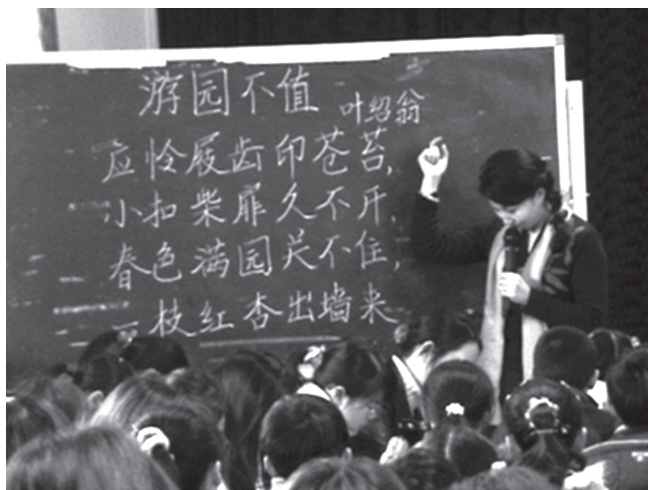 游园不值
叶绍翁
应怜屐齿印苍苔,
小扣柴扉久不开,
春色满园关不住,
一枝红杏出墙来